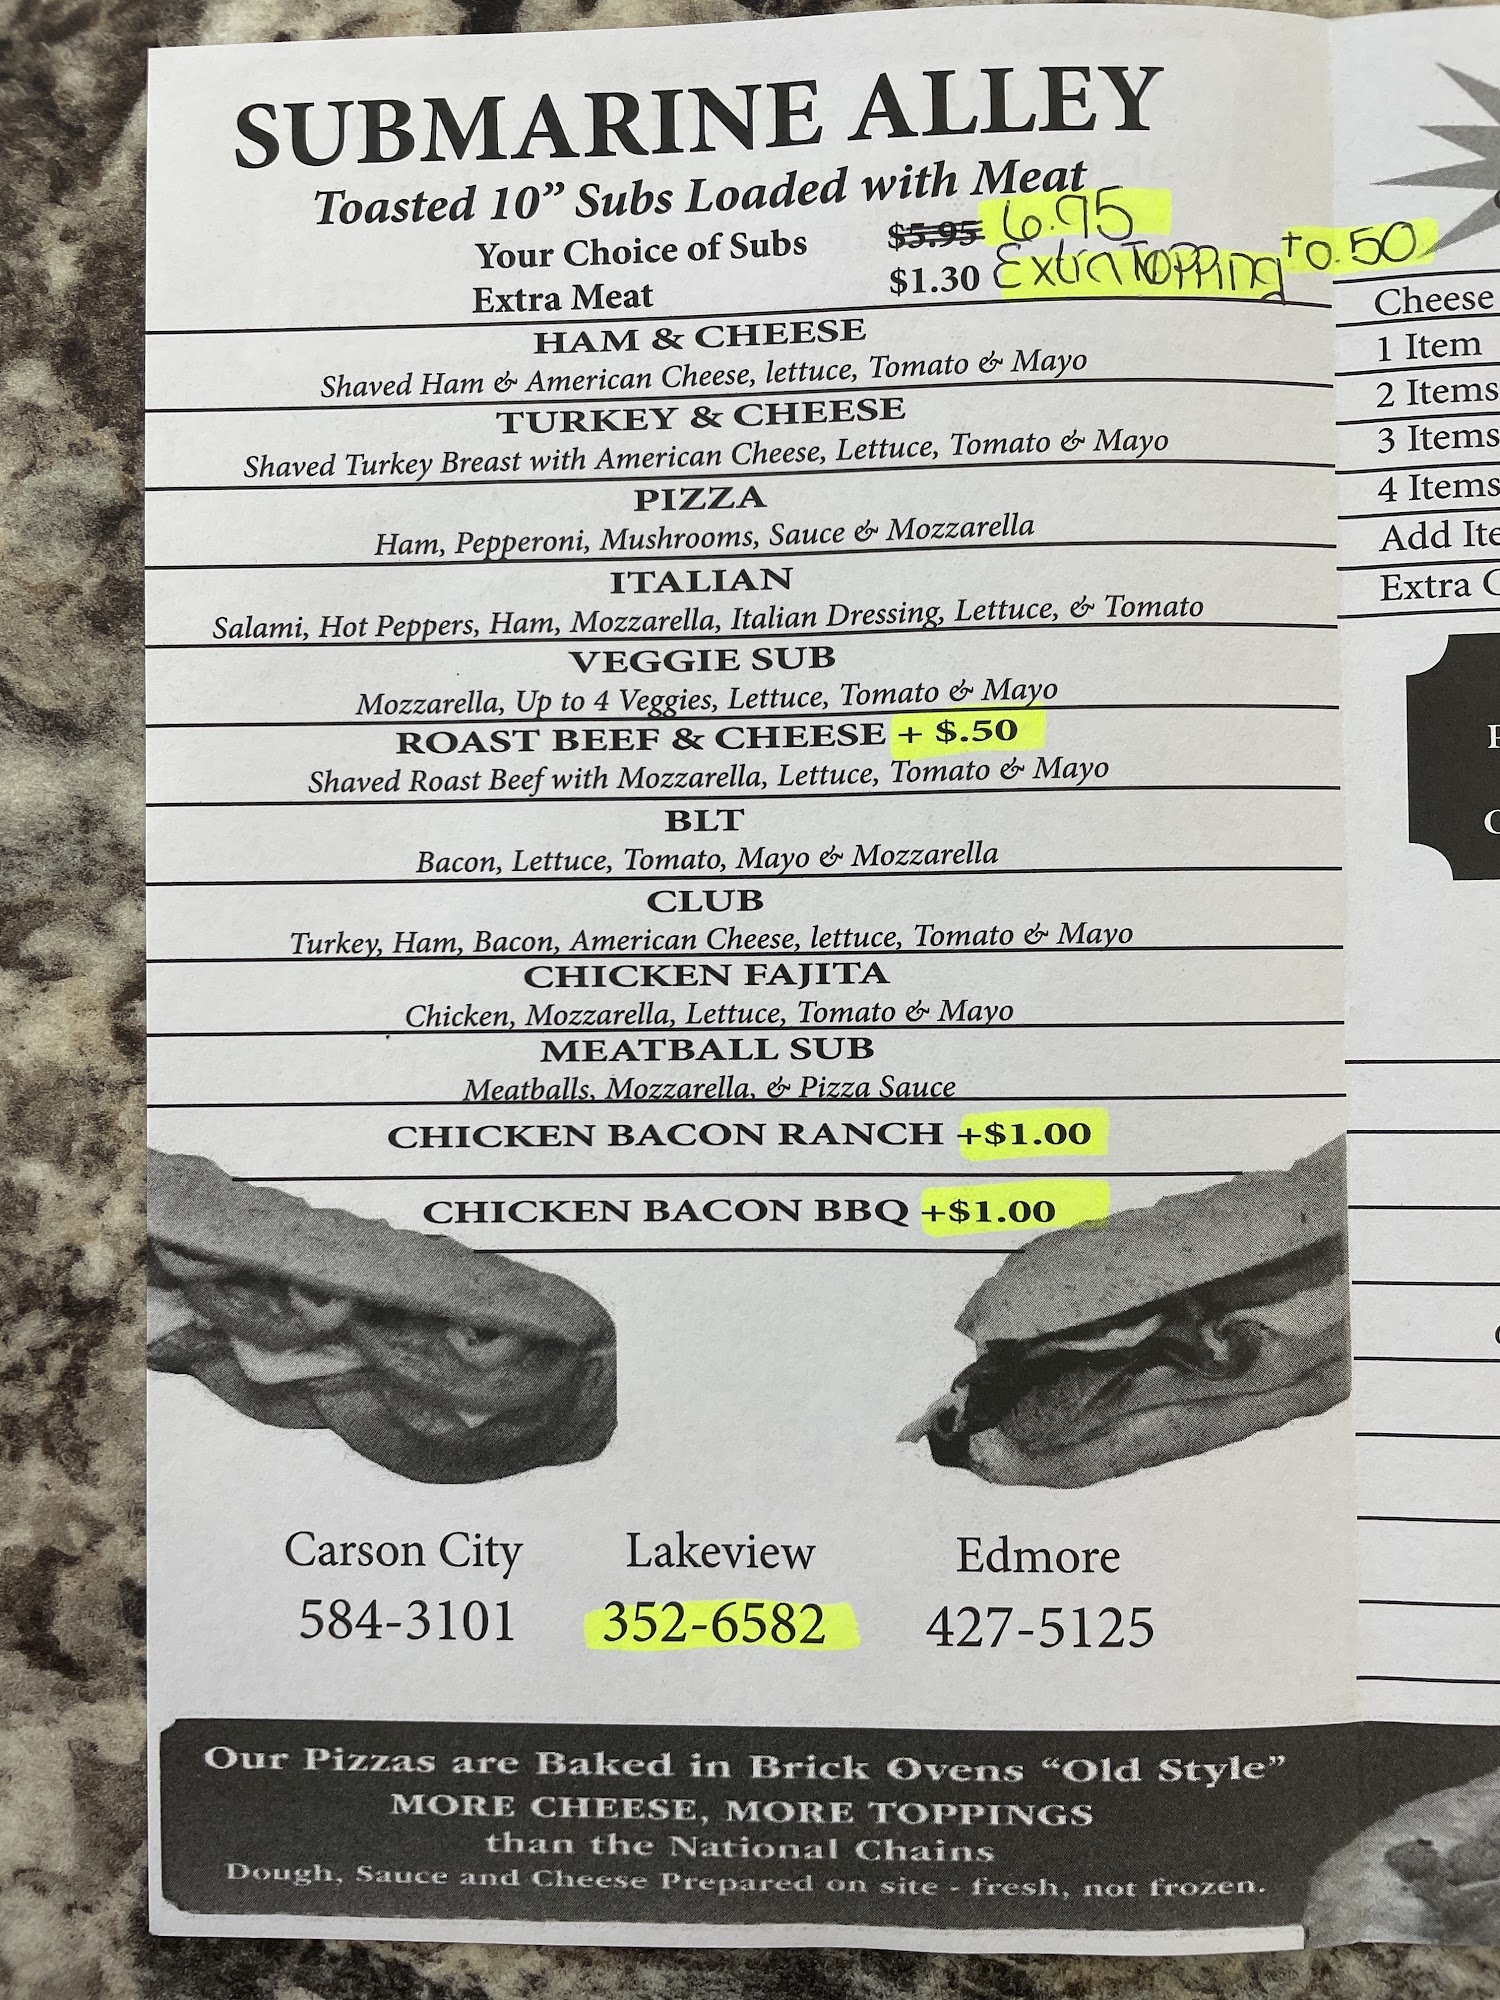 SUBMARINE ALLEY
Toasted 10” Subs Loaded with Meat
Your Choice of Subs $5.95 6.95
Extra Meat $1.30 Extra Topping +0.50
HAM & CHEESE
Shaved Ham & American Cheese, lettuce, Tomato & Mayo
TURKEY & CHEESE
Shaved Turkey Breast with American Cheese, Lettuce, Tomato & Mayo
PIZZA
Ham, Pepperoni, Mushrooms, Sauce & Mozzarella
ITALIAN
Salami, Hot Peppers, Ham, Mozzarella, Italian Dressing, Lettuce, & Tomato
VEGGIE SUB
Mozzarella, Up to 4 Veggies, Lettuce, Tomato & Mayo
ROAST BEEF & CHEESE + $.50
Shaved Roast Beef with Mozzarella, Lettuce, Tomato & Mayo
BLT
Bacon, Lettuce, Tomato, Mayo & Mozzarella
CLUB
Turkey, Ham, Bacon, American Cheese, lettuce, Tomato & Mayo
CHICKEN FAJITA
Chicken, Mozzarella, Lettuce, Tomato & Mayo
MEATBALL SUB
Meatballs, Mozzarella, & Pizza Sauce
CHICKEN BACON RANCH +$1.00
CHICKEN BACON BBQ +$1.00
Carson City
584-3101
Lakeview
352-6582
Edmore
427-5125
Our Pizzas are Baked in Brick Ovens “Old Style”
MORE CHEESE, MORE TOPPINGS
than the National Chains
Dough, Sauce and Cheese Prepared on site - fresh, not frozen.
Cheese
1 Item
2 Items
3 Items
4 Items
Add
Extra